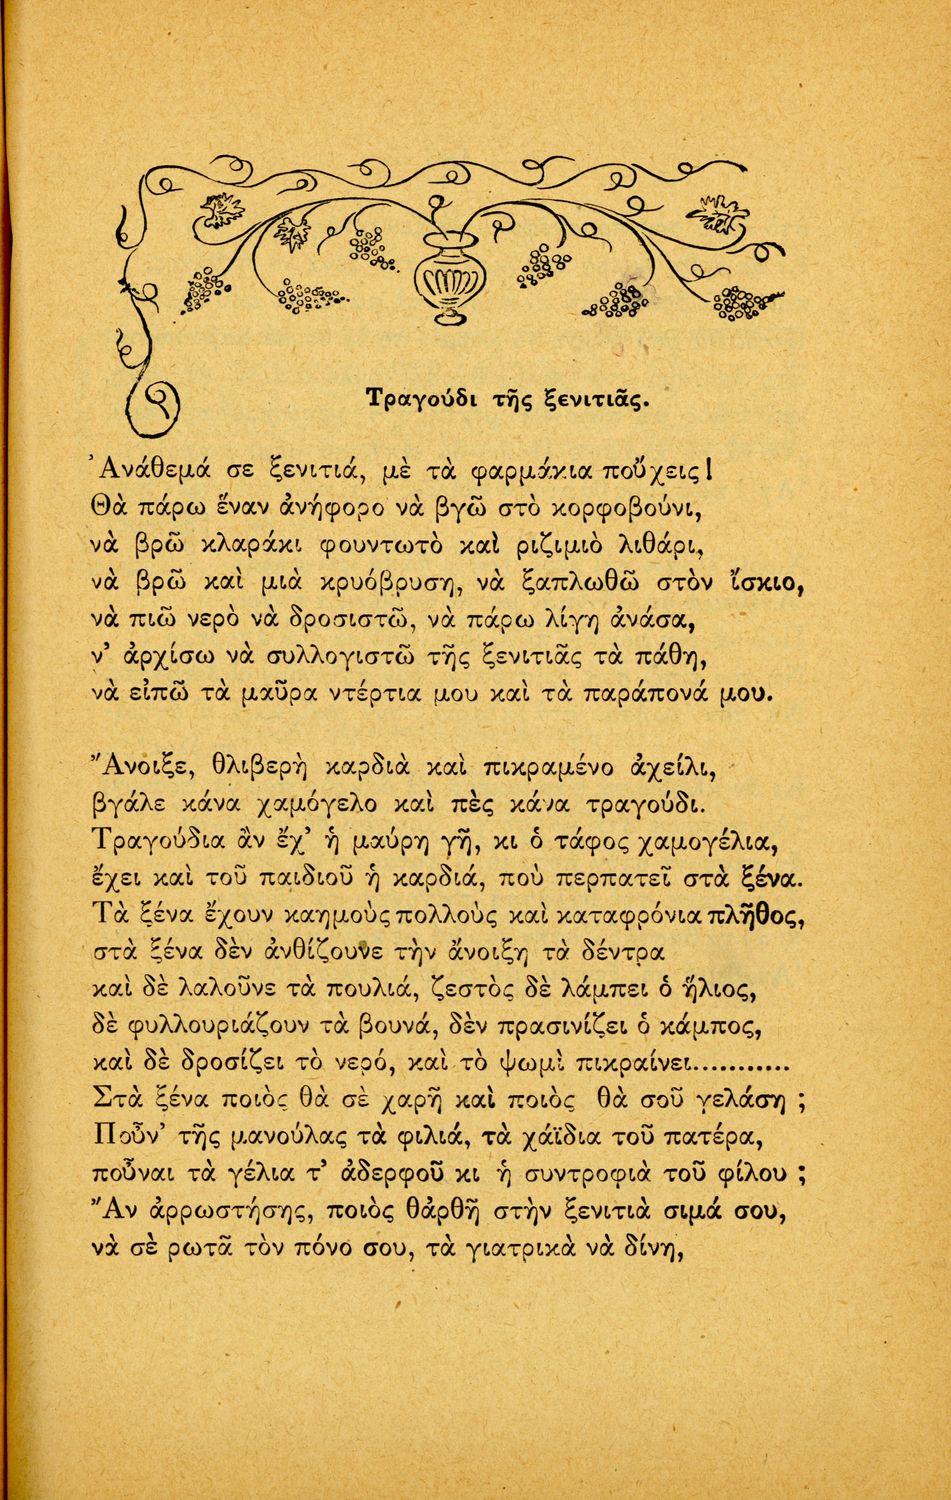 Τραγούδι τῆς ξενιτιᾶς.
Ἀνάθεμά σε ξενιτιά, μὲ τὰ φαρμάκια ποὔχεις!
Θὰ πάρω ἕναν ἀνήφορο νὰ βγῶ στὸ κορφοβούνι,
νὰ βρῶ κλαράκι φουντωτὸ καὶ ριζιμιὸ λιθάρι,
νὰ βρῶ καὶ μιὰ κρυόβρυση, νὰ ξαπλωθῶ στὸν ἴσκιο,
νὰ πιῶ νερὸ νὰ δροσιστῶ, νὰ πάρω λίγη ἀνάσα,
ν’ ἀρχίσω νὰ συλλογιστῶ τῆς ξενιτιᾶς τὰ πάθη,
νὰ εἰπῶ τὰ μαῦρα ντέρτια μου καὶ τὰ παράπονά μου.
Ἄνοιξε, θλιβερὴ καρδιὰ καὶ πικραμένο ἀχείλι,
βγάλε κάνα χαμόγελο καὶ πὲς κάνα τραγούδι.
Τραγούδια ἂν ἔχ’ ἡ μαύρη γῆ, κι ὁ τάφος χαμογέλια,
ἔχει καὶ τοῦ παιδιοῦ ἡ καρδιά, ποὺ περπατεῖ στὰ ξένα.
Τὰ ξένα ἔχουν καημοὺς πολλοὺς καὶ καταφρόνια πλῆθος,
στὰ ξένα δὲν ἀνθίζουνε τὴν ἄνοιξη τὰ δέντρα
καὶ δὲ λαλοῦνε τὰ πουλιά, ζεστὸς δὲ λάμπει ὁ ἥλιος,
δὲ φυλλουριάζουν τὰ βουνά, δὲν πρασινίζει ὁ κάμπος,
καὶ δὲ δροσίζει τὸ νερό, καὶ τὸ ψωμὶ πικραίνει...........
Στὰ ξένα ποιὸς θὰ σὲ χαρῆ καὶ ποιὸς θὰ σοῦ γελάση ;
Ποὖν’ τῆς μανούλας τὰ φιλιά, τὰ χάϊδια τοῦ πατέρα,
ποὖναι τὰ γέλια τ’ ἀδερφοῦ κι ἡ συντροφιὰ τοῦ φίλου ;
Ἂν ἀρρωστήσης, ποιὸς θἀρθῆ στὴν ξενιτιὰ σιμά σου,
νὰ σὲ ρωτᾶ τὸν πόνο σου, τὰ γιατρικὰ νὰ δίνη,